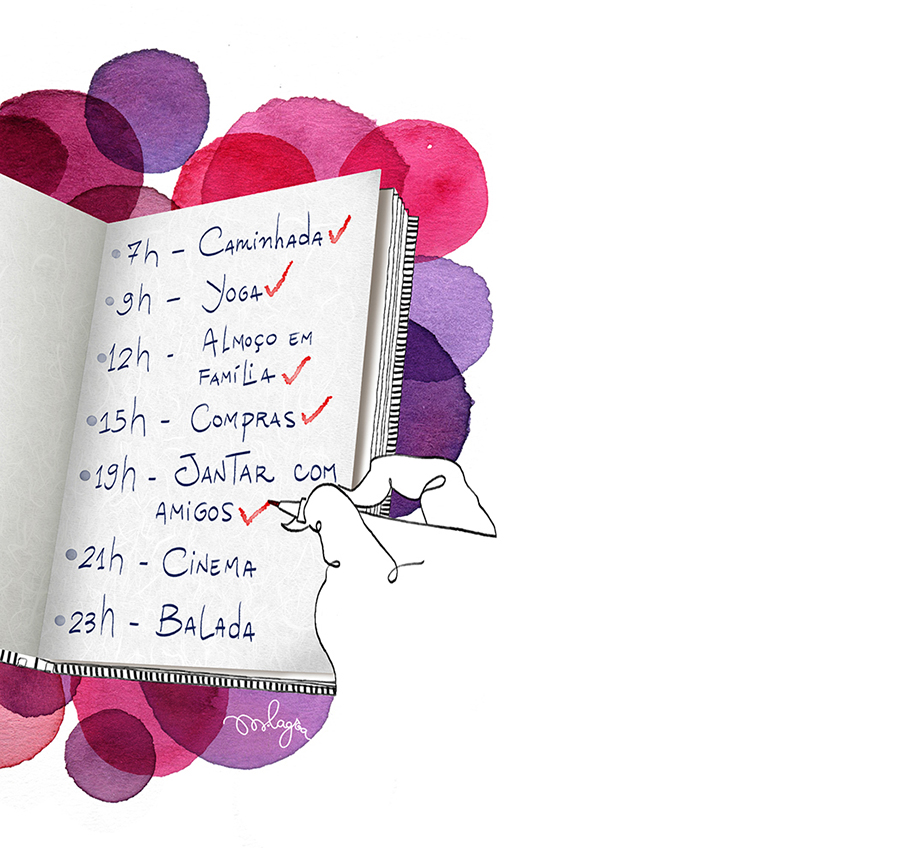 7h - Caminhada
9h - Yoga
12h - Almoço em
família
15h - Compras
19h - Jantar com
amigos
21h - Cinema
23h - Balada